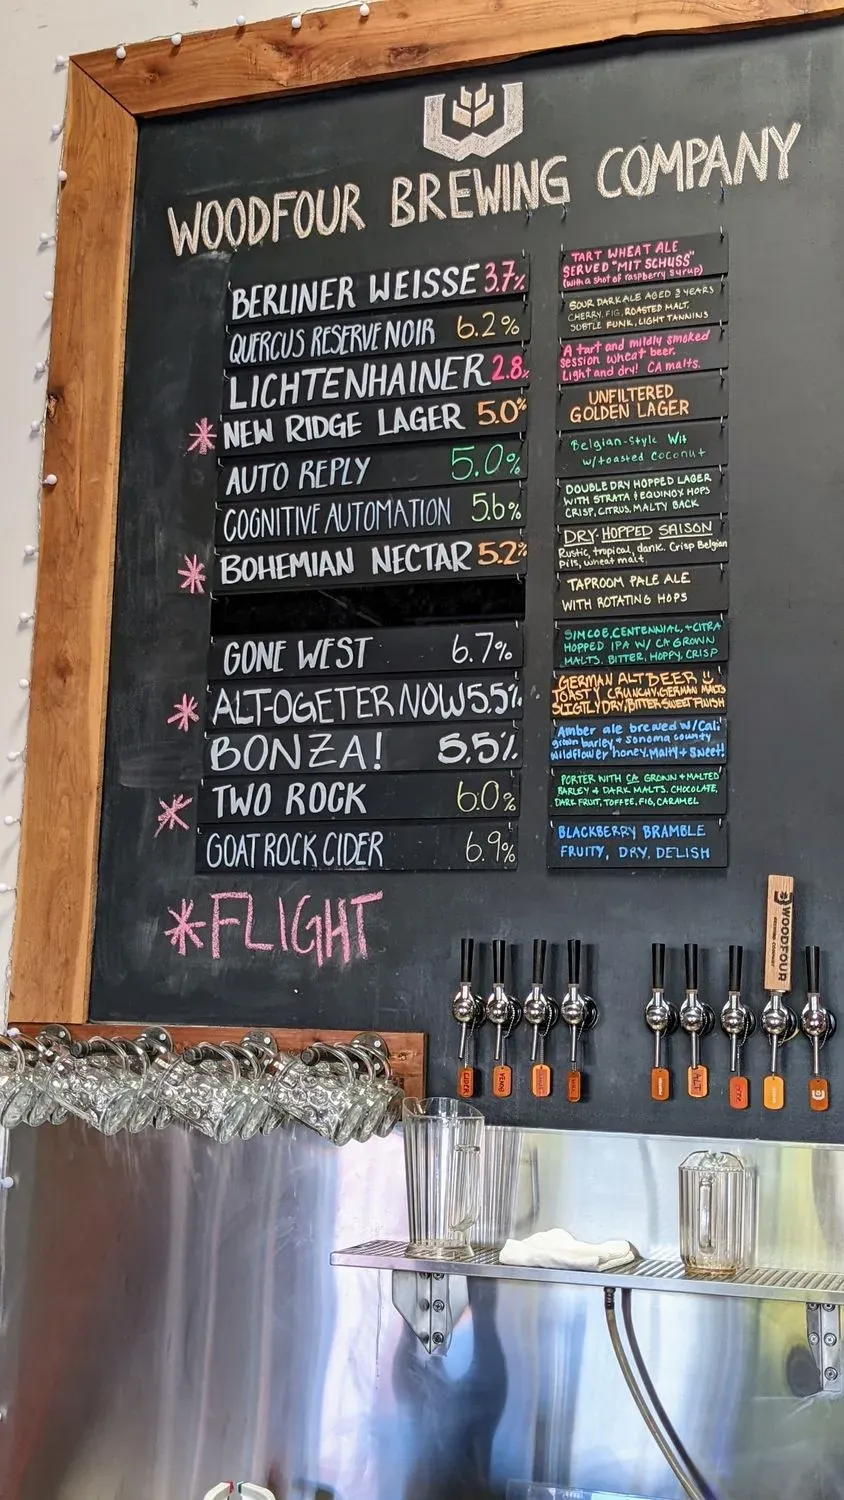 WOODFOUR BREWING COMPANY
BERLINER WEISSE 3.7%
TART WHEAT ALE
SERVED "MIT SCHUSS"
(with a shot of raspberry syrup)
QUERCUS RESERVE NOIR 6.2%
SOUR DARK ALE AGED 3 YEARS
CHERRY, FIG, ROASTED MALT,
SUBTLE FUNK, LIGHT TANNINS
LICHTENHAINER 2.8%
A tart and mildly smoked
session wheat beer.
Light and dry! CA malts.
* NEW RIDGE LAGER 5.0%
UNFILTERED
GOLDEN LAGER
AUTO REPLY 5.0%
Belgian-Style Wit
w/toasted coconut
COGNITIVE AUTOMATION 5.6%
DOUBLE DRY HOPPED LAGER
WITH STRATA & EQUINOX HOPS
CRISP, CITRUS, MALTY BACK
* BOHEMIAN NECTAR 5.2%
DRY-HOPPED SAISON
Rustic, tropical, dank. Crisp Belgian
Pils, wheat malt.
TAPROOM PALE ALE
WITH ROTATING HOPS
GONE WEST 6.7%
SIMCOE, CENTENNIAL, + CITRA
HOPPED IPA W/ CA GROWN
MALTS. BITTER, HOPPY, CRISP
* ALT-OGETER NOW 5.5%
GERMAN ALTBEER
TOASTY CRUNCHY, GERMAN MALTS
SLIGTLY DRY, BITTERSWEET FINISH
BONZA! 5.5%
Amber ale brewed w/Cal.
grown barley & sonoma county
wildflower honey. Malty + Sweet!
* TWO ROCK 6.0%
PORTER WITH CA GROWN + MALTED
BARLEY & DARK MALTS. CHOCOLATE,
DARK FRUIT, TOFFEE, FIG, CARAMEL
GOAT ROCK CIDER 6.9%
BLACKBERRY BRAMBLE
FRUITY, DRY, DELISH
*FLIGHT
WOODFOUR
BREWING COMPANY
CIDER
ALT